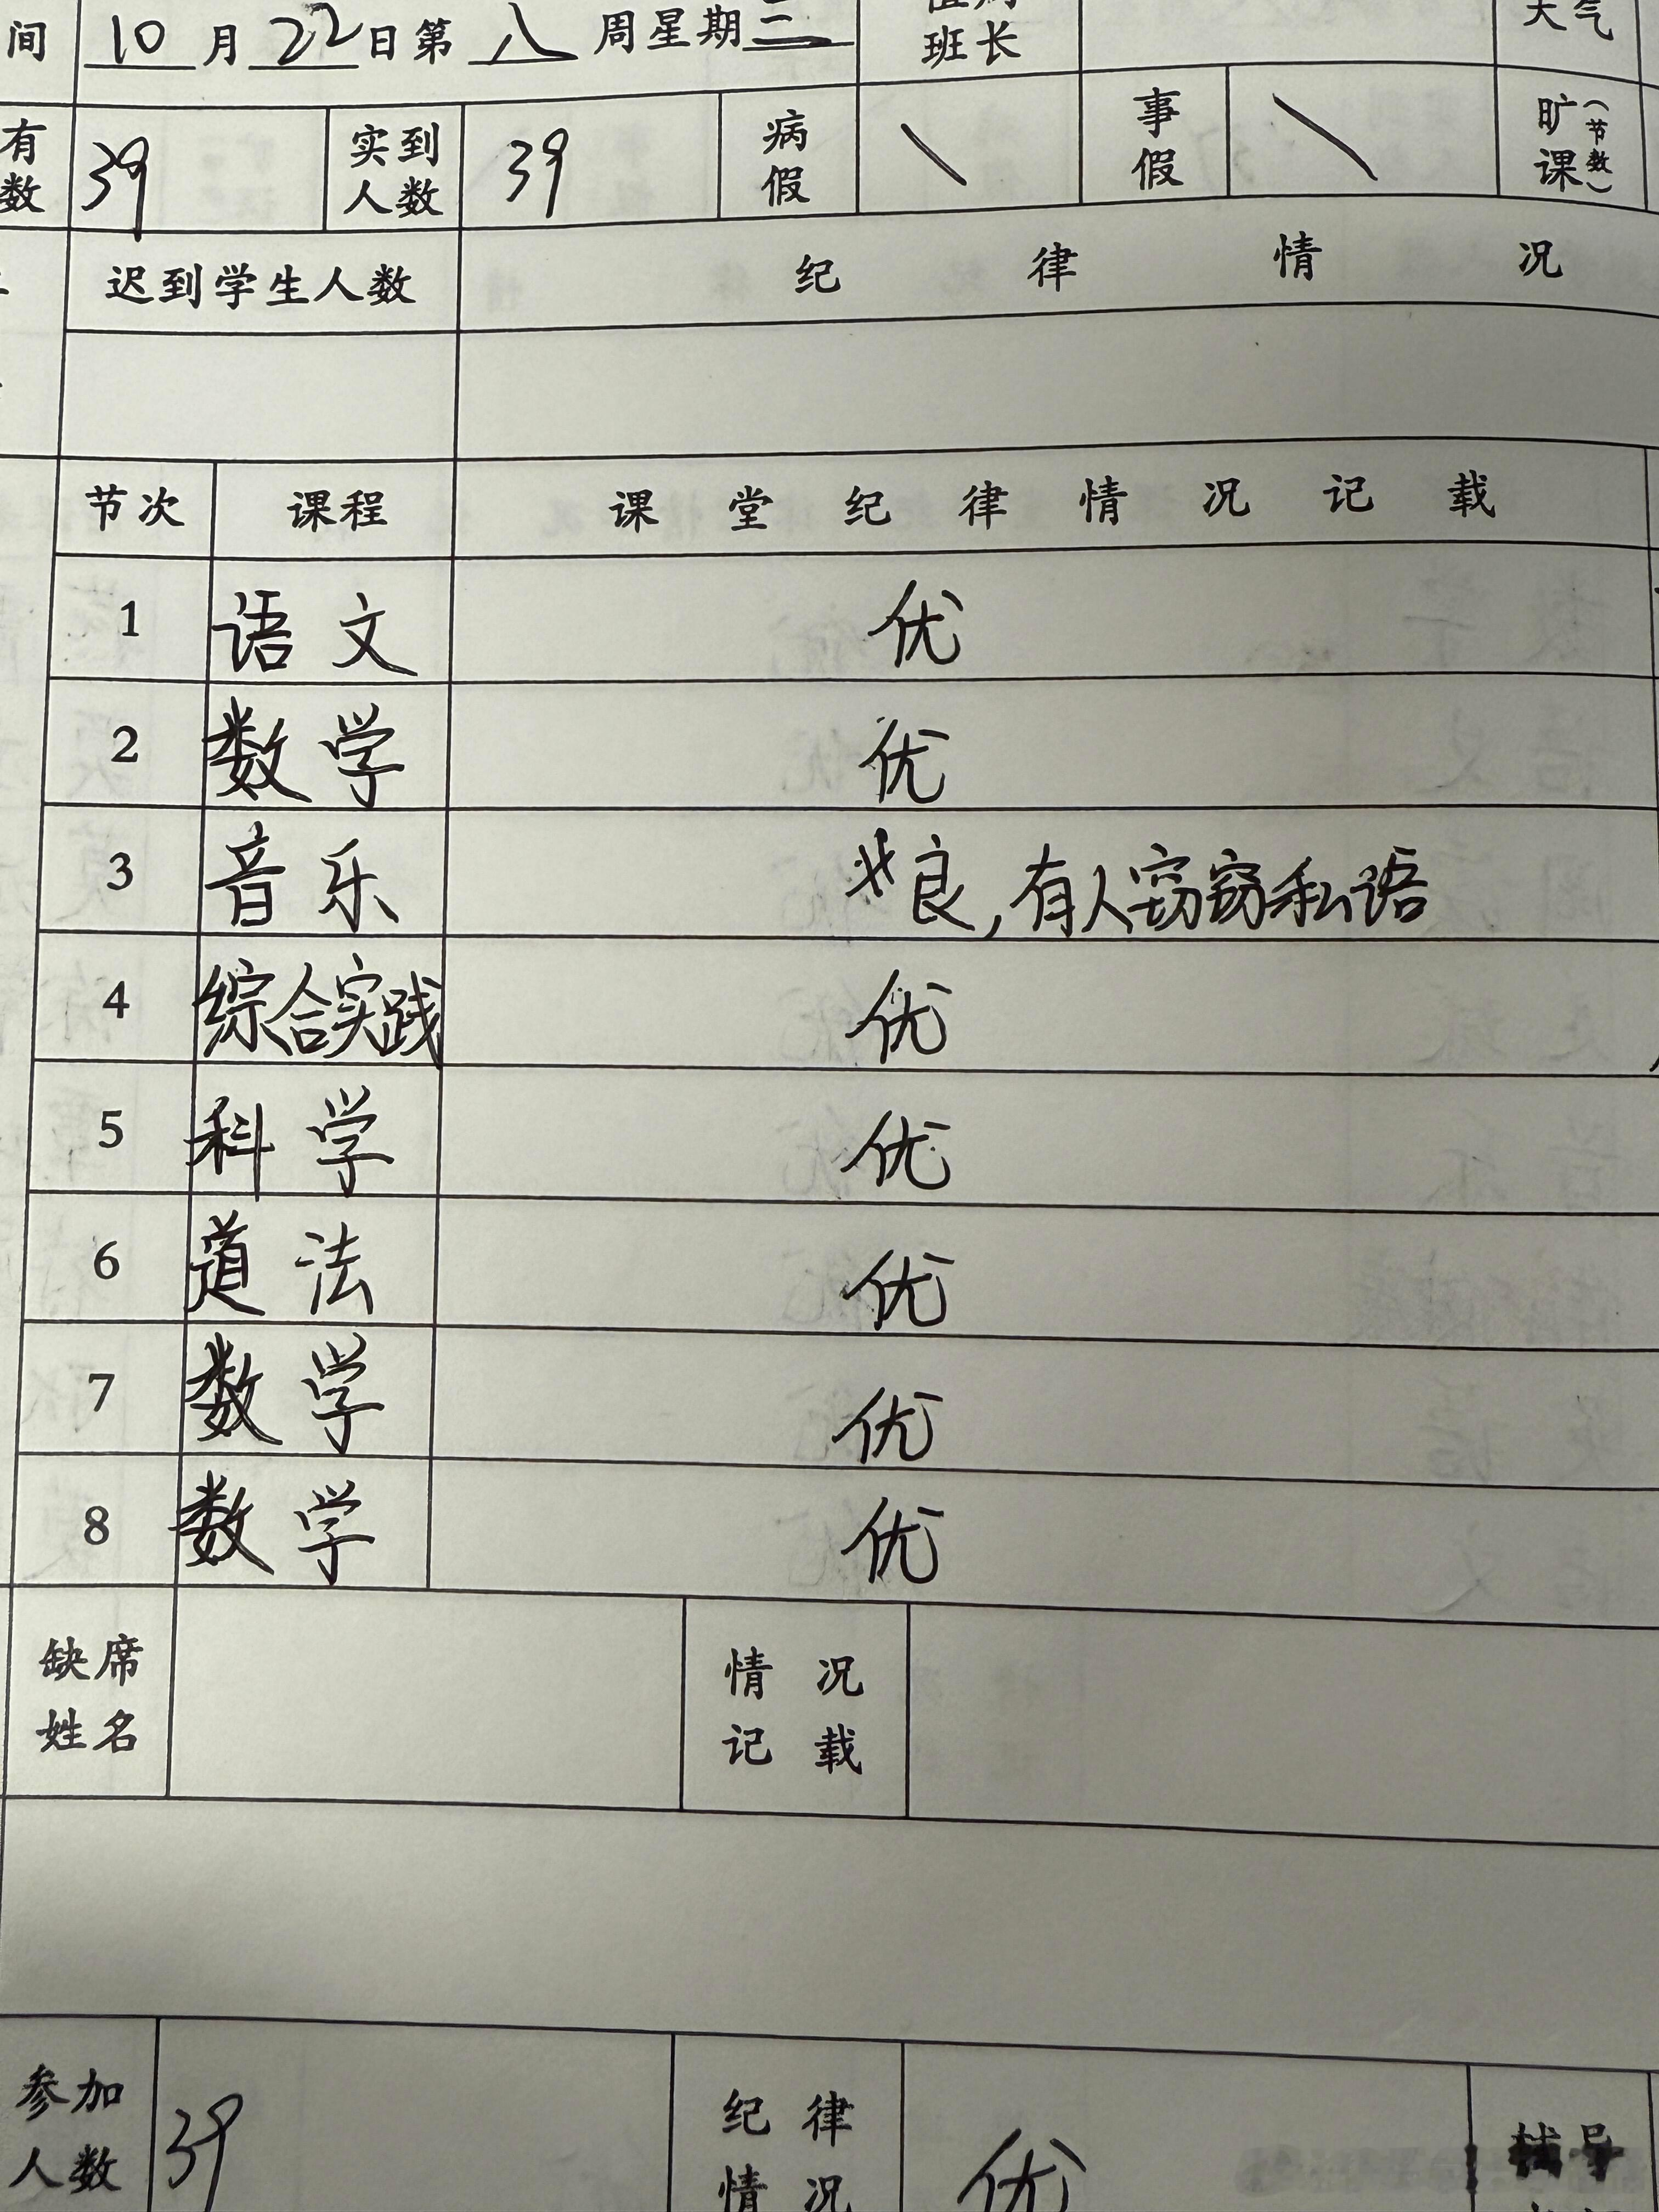 间 10 月 22 日第 八 周星期三 班长 天气
有数 39 实到人数 39 病假 \ 事假 \ 旷课(节数)
迟到学生人数 纪律情况
节次 课程 课堂纪律情况记载
1 语文 优
2 数学 优
3 音乐 良,有人窃窃私语
4 综合实践 优
5 科学 优
6 道法 优
7 数学 优
8 数学 优
缺席姓名 情况记载
参加人数 39 纪律情况 优 辅导